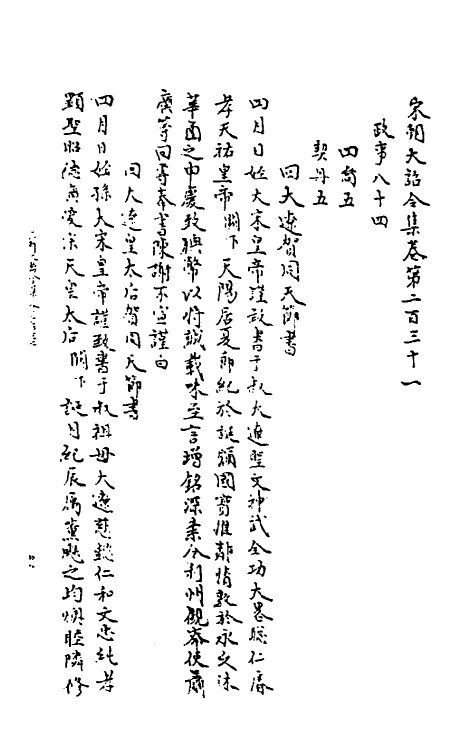 宋朝大詔令集卷第二百三十一
政事八十四
四裔五
契丹五
回大遼賀同天節書
四月日姪大宋皇帝謹致書于叔大遼聖文神武全功大畧聰仁睿
孝天祐皇帝闕下天陽居夏郎紀於誕彌國寶惟鄰情敦於永久沫
華函之申慶致聘幣以將誠載味至言增銘深素今利州觀察使蕭
廣等回專奉書陳謝不宣謹白
回大遼皇太后賀同天節書
四月日姪孫大宋皇帝謹致書于叔祖母大遼慈懿仁和文惠純孝
顯聖昭德廣愛宗天皇太后闕下誕月紀辰屬薰颸之均煥睦隣修